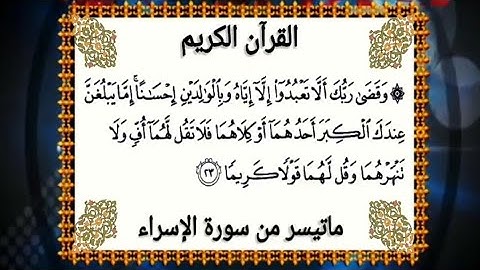 القرآن الكريم
۞ وَقَضَىٰ رَبُّكَ أَلَّا تَعْبُدُوٓا۟ إِلَّآ إِيَّاهُ وَبِٱلْوَٰلِدَيْنِ إِحْسَٰنًا ۚ إِمَّا يَبْلُغَنَّ
عِندَكَ ٱلْكِبَرَ أَحَدُهُمَآ أَوْ كِلَاهُمَا فَلَا تَقُل لَّهُمَآ أُفٍّ وَلَا
تَنْهَرْهُمَا وَقُل لَّهُمَا قَوْلًا كَرِيمًا ٢٣
ماتيسر من سورة الإسراء